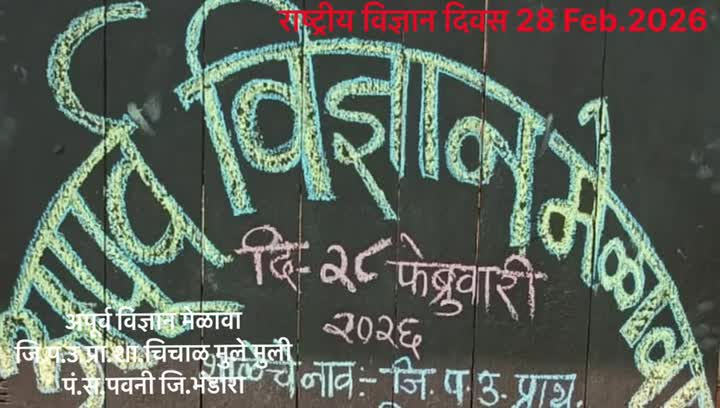 राष्ट्रीय विज्ञान दिवस 28 Feb.2026
अपूर्व विज्ञान मेळावा
दि- २८ फेब्रुवारी
२०२६
अपूर्व विज्ञान मेळावा
जि.प.उ.प्रा.शा.चिचाळ मुले मुली
पं.स.पवनी जि.भंडारा
शाळेचे नाव:- जि. प. उ. प्राथ.